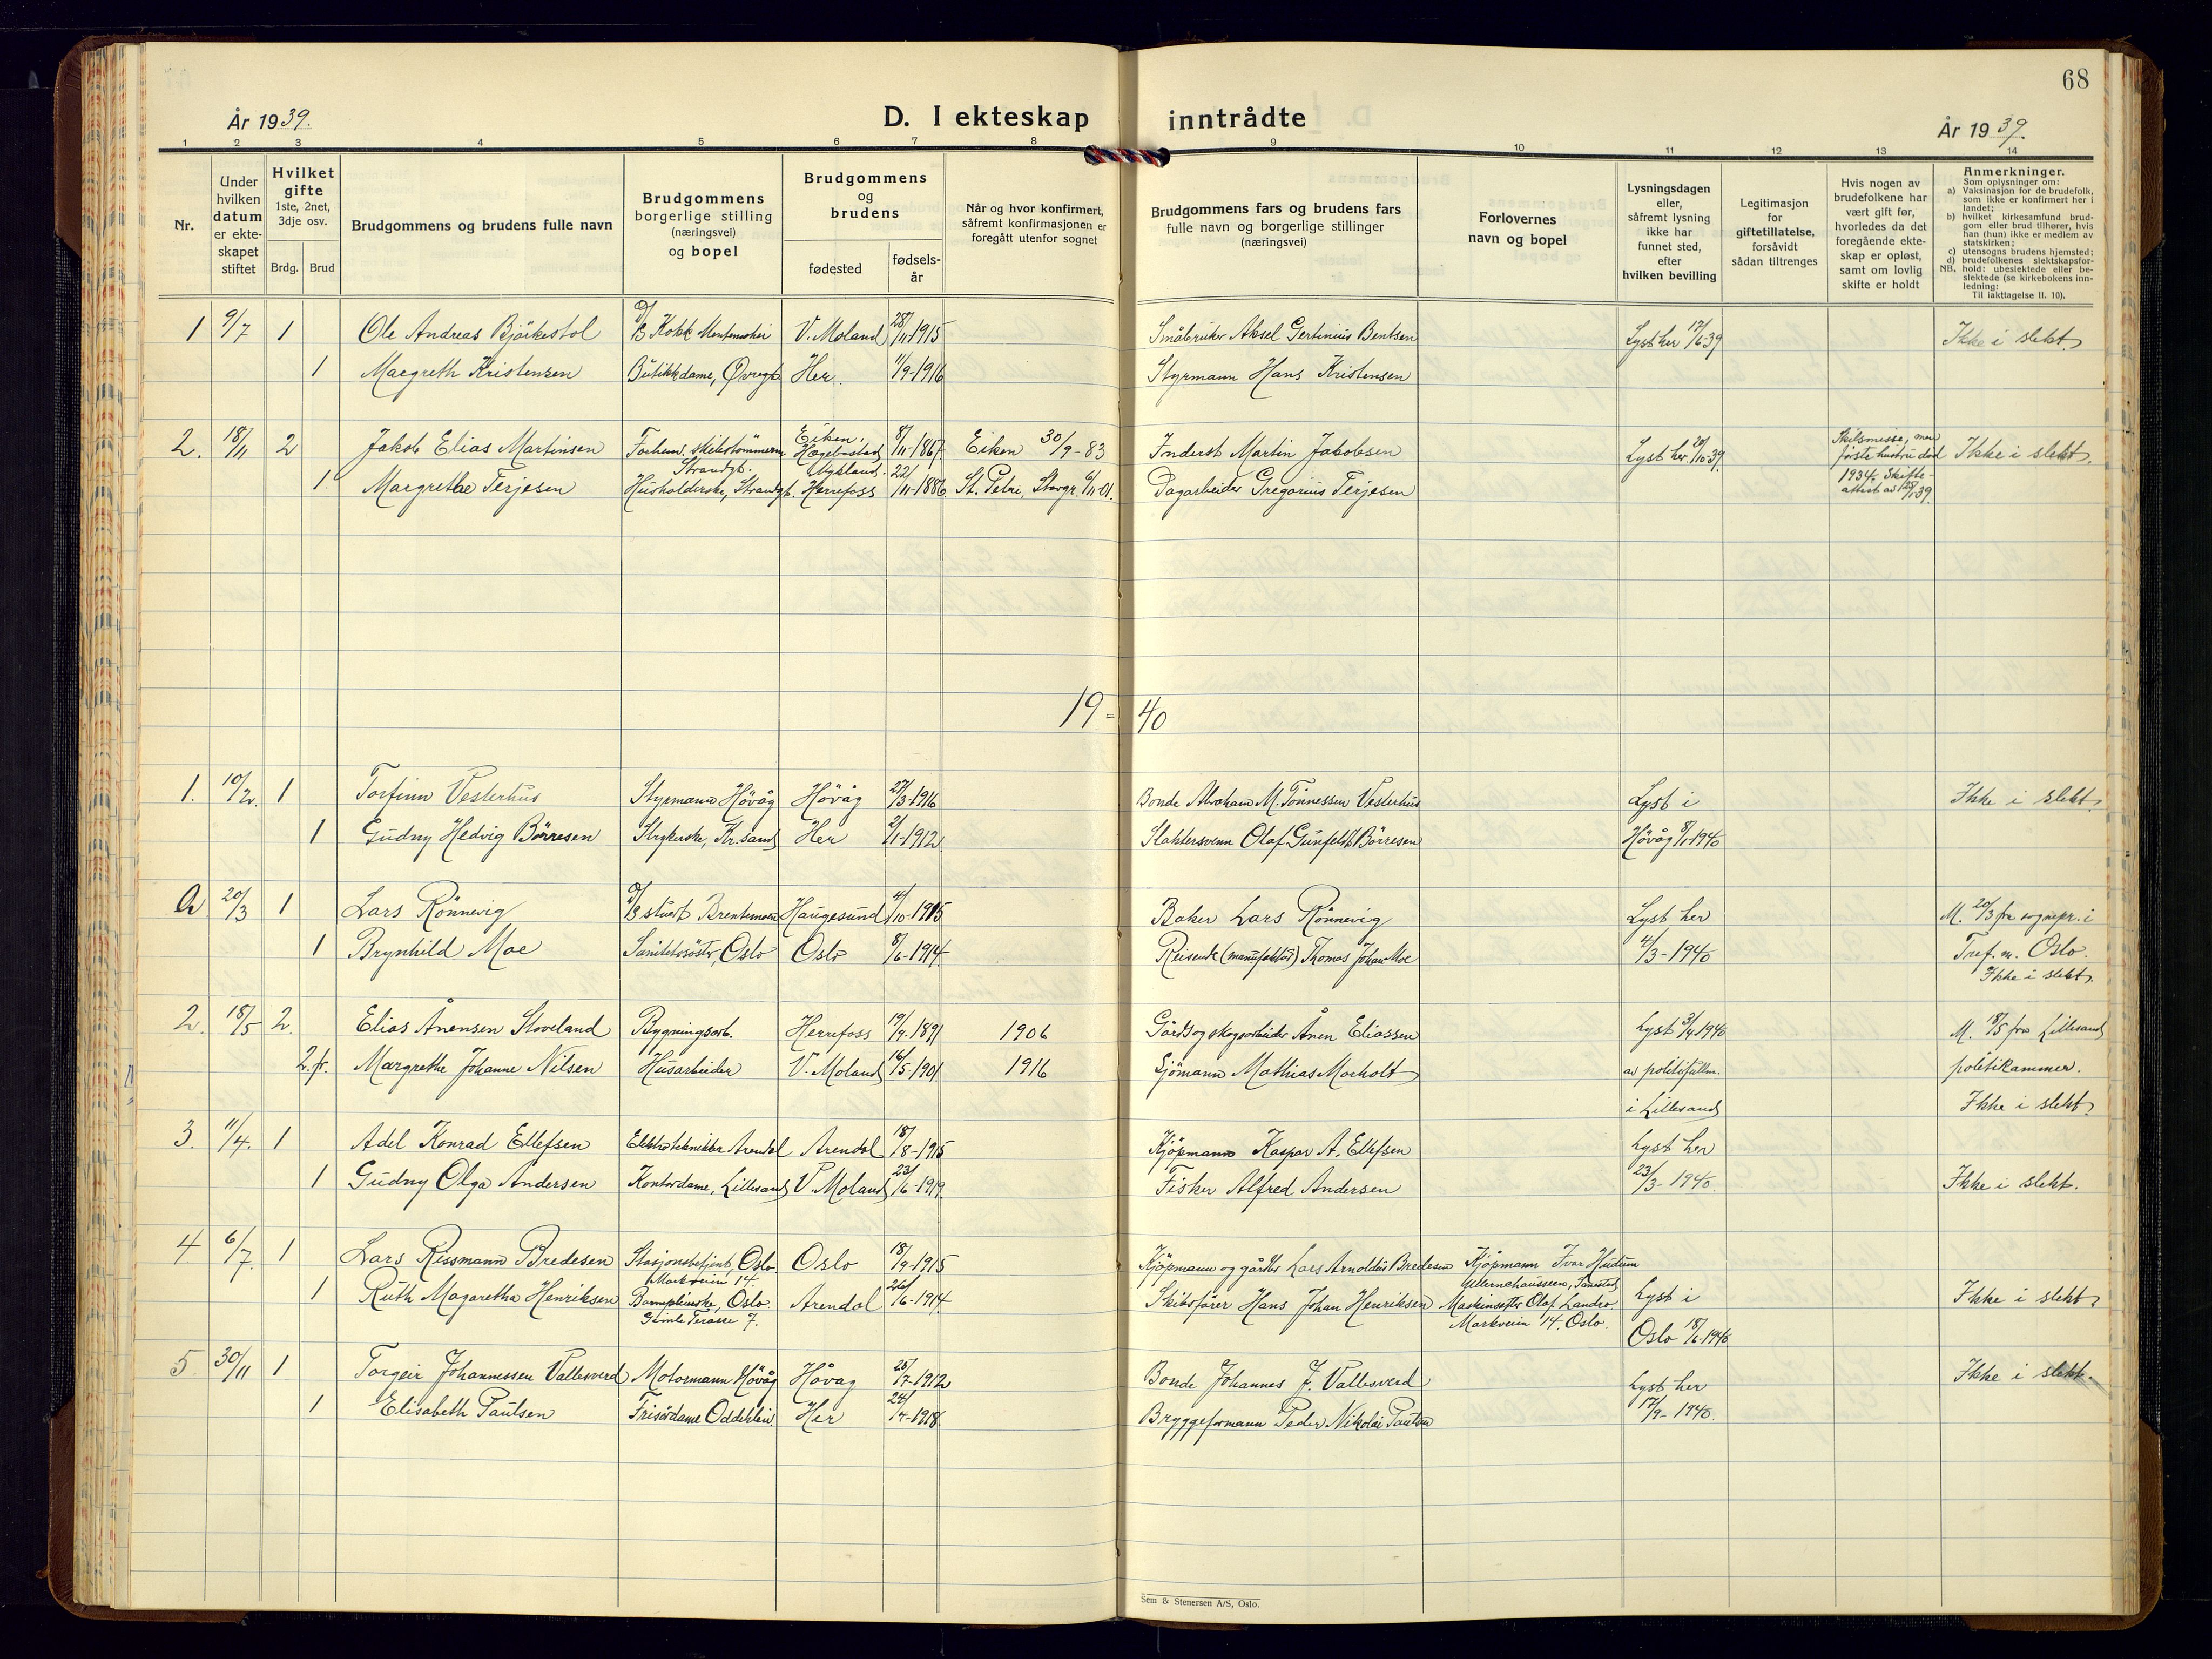 68
År 1939.
D. I ekteskap inntrådte
År 1939.
1 2 3 4 5 6 7 8 9 10 11 12 13 14
Nr.
Under hvilken datum er ekte-skapet stiftet
Hvilket gifte 1ste, 2net, 3dje osv.
Brdg. Brud
Brudgommens og brudens fulle navn
Brudgommens borgerlige stilling (næringsvei) og bopel
Brudgommens og brudens
fødested
fødsels-år
Når og hvor konfirmert, såfremt konfirmasjonen er foregått utenfor sognet
Brudgommens fars og brudens fars fulle navn og borgerlige stillinger (næringsvei)
Forlovernes navn og bopel
Lysningsdagen eller, såfremt lysning ikke har funnet sted, efter hvilken bevilling
Legitimasjon for giftetillatelse, forsåvidt sådan tiltrenges
Hvis nogen av brudefolkene har vært gift før, hvorledes da det foregående ekte-skap er opløst, samt om lovlig skifte er holdt
Anmerkninger.
Som oplysninger om:
a) Vaksinasjon for de brudefolk, som ikke er konfirmert her i landet;
b) hvilket kirkesamfund brud-gom eller brud tilhører, hvis han (hun) ikke er medlem av statskirken;
c) utensogns brudens hjemsted;
d) brudefolkenes slektskapsfor-hold: ubeslektede eller be-slektede (se kirkebokens inn-ledning:
NB.
Til iakttagelse II. 10).
1 9/7 1 Ole Andreas Björkestol Kokk V. Moland 28/11-1915 Småbruker Aksel Gertinius Bentsen Lyst her 17/6-39 Ikke i slekt.
1 Margreth Kristensen Butikkdame, Øvregt Her. 11/9-1916 Styrmann Hans Kristensen
2. 18/11 2 Jakob Elias Martinsen Forhenv. skibstömmerm. Strandgt. Eiken, Hægebostad 8/11-1867 Eiken 30/9-83 Inderst Martin Jakobsen Lyst her 20/10-39 Skilsmisse, men første hustru död 1934. Skifte-attest av Ikke i slekt.
1 Margrethe Terjesen Husholderske, Strandgt. Herrefoss 22/11-1886 St. Petri, Stavgr. Dagarbeider Gregorius Terjesen
19-40
1. 10/2. 1 Torfinn Vesterhus Styrmann Hövåg Hövåg 27/3-1916 Bonde Abraham M. Tönnessen Vesterhus Lyst i Ikke i slekt.
1 Gudny Hedvig Börresen Strykerske, Kr.sand Her 2/1-1912 Slaktersvenn Olaf Gunfeldt Börresen Hövåg 8/1-1940
a 20/3 1 Lars Rönnevig Haugesund 4/10-1915 Baker Lars Rönnevig Lyst her M. 20/3 fra sognepr. i
1 Brynhild Moe Sanitetssöster, Oslo Oslo 8/6-1914 Reisende (manufaktur) Thomas Johan Moe 4/3-1940 Tref. m. Oslo.
Ikke i slekt.
2. 18/5 2. Elias Ånensen Stoveland Bygningsarb. Herrefoss 19/9-1891 1906 Gårds og skogsarbeider Ånen Eliassen Lyst 3/4 1940 M. 18/5 fra Lillesand
2. fr. Margrethe Johanne Nilsen Husarbeider V. Moland 16/5-1901 1916 Sjömann Mathias Moeholt av politifullm. politikammer.
i Lillesand Ikke i slekt.
3. 11/4. 1 Adel Konrad Ellefsen Elektrotekniker Arendal Arendal 18/8-1915 Kjöpmann Kaspar A. Ellefsen Lyst her
1 Gudny Olga Andersen Kontordame, Lillesand V. Moland 23/6-1919 Fisker Alfred Andersen 23/3-1940. Ikke i slekt.
4 6/7. 1 Lars Rissmann Bredesen Stasjonsbetjent, Oslo. Markveien 14. Oslo 18/9-1915 Kjöpmann og gårdbr Lars Arnoldus Bredesen Kjöpmann Ivar Hudum
1 Ruth Magaretha Henriksen Barnepleierske, Oslo. Gimle Terasse 7. Arendal 26/6-1914 Skibsförer Hans Johan Henriksen Olaf Landro Markveien 14, Oslo. Lyst i Oslo 18/6-1940 Ikke i slekt.
5 30/11 1 Torgeir Johannessen Vallesverd Motormann Hövåg Hövag 28/7-1912 Bonde Johannes J. Vallesverd Lyst her Ikke i slekt.
1 Elisabeth Paulsen Frisördame Oddeklein Her 24/4-1918. Bryggeformann Peder Nikolai Paulsen 17/9-1940.
Sem & Stenersen A/S, Oslo.